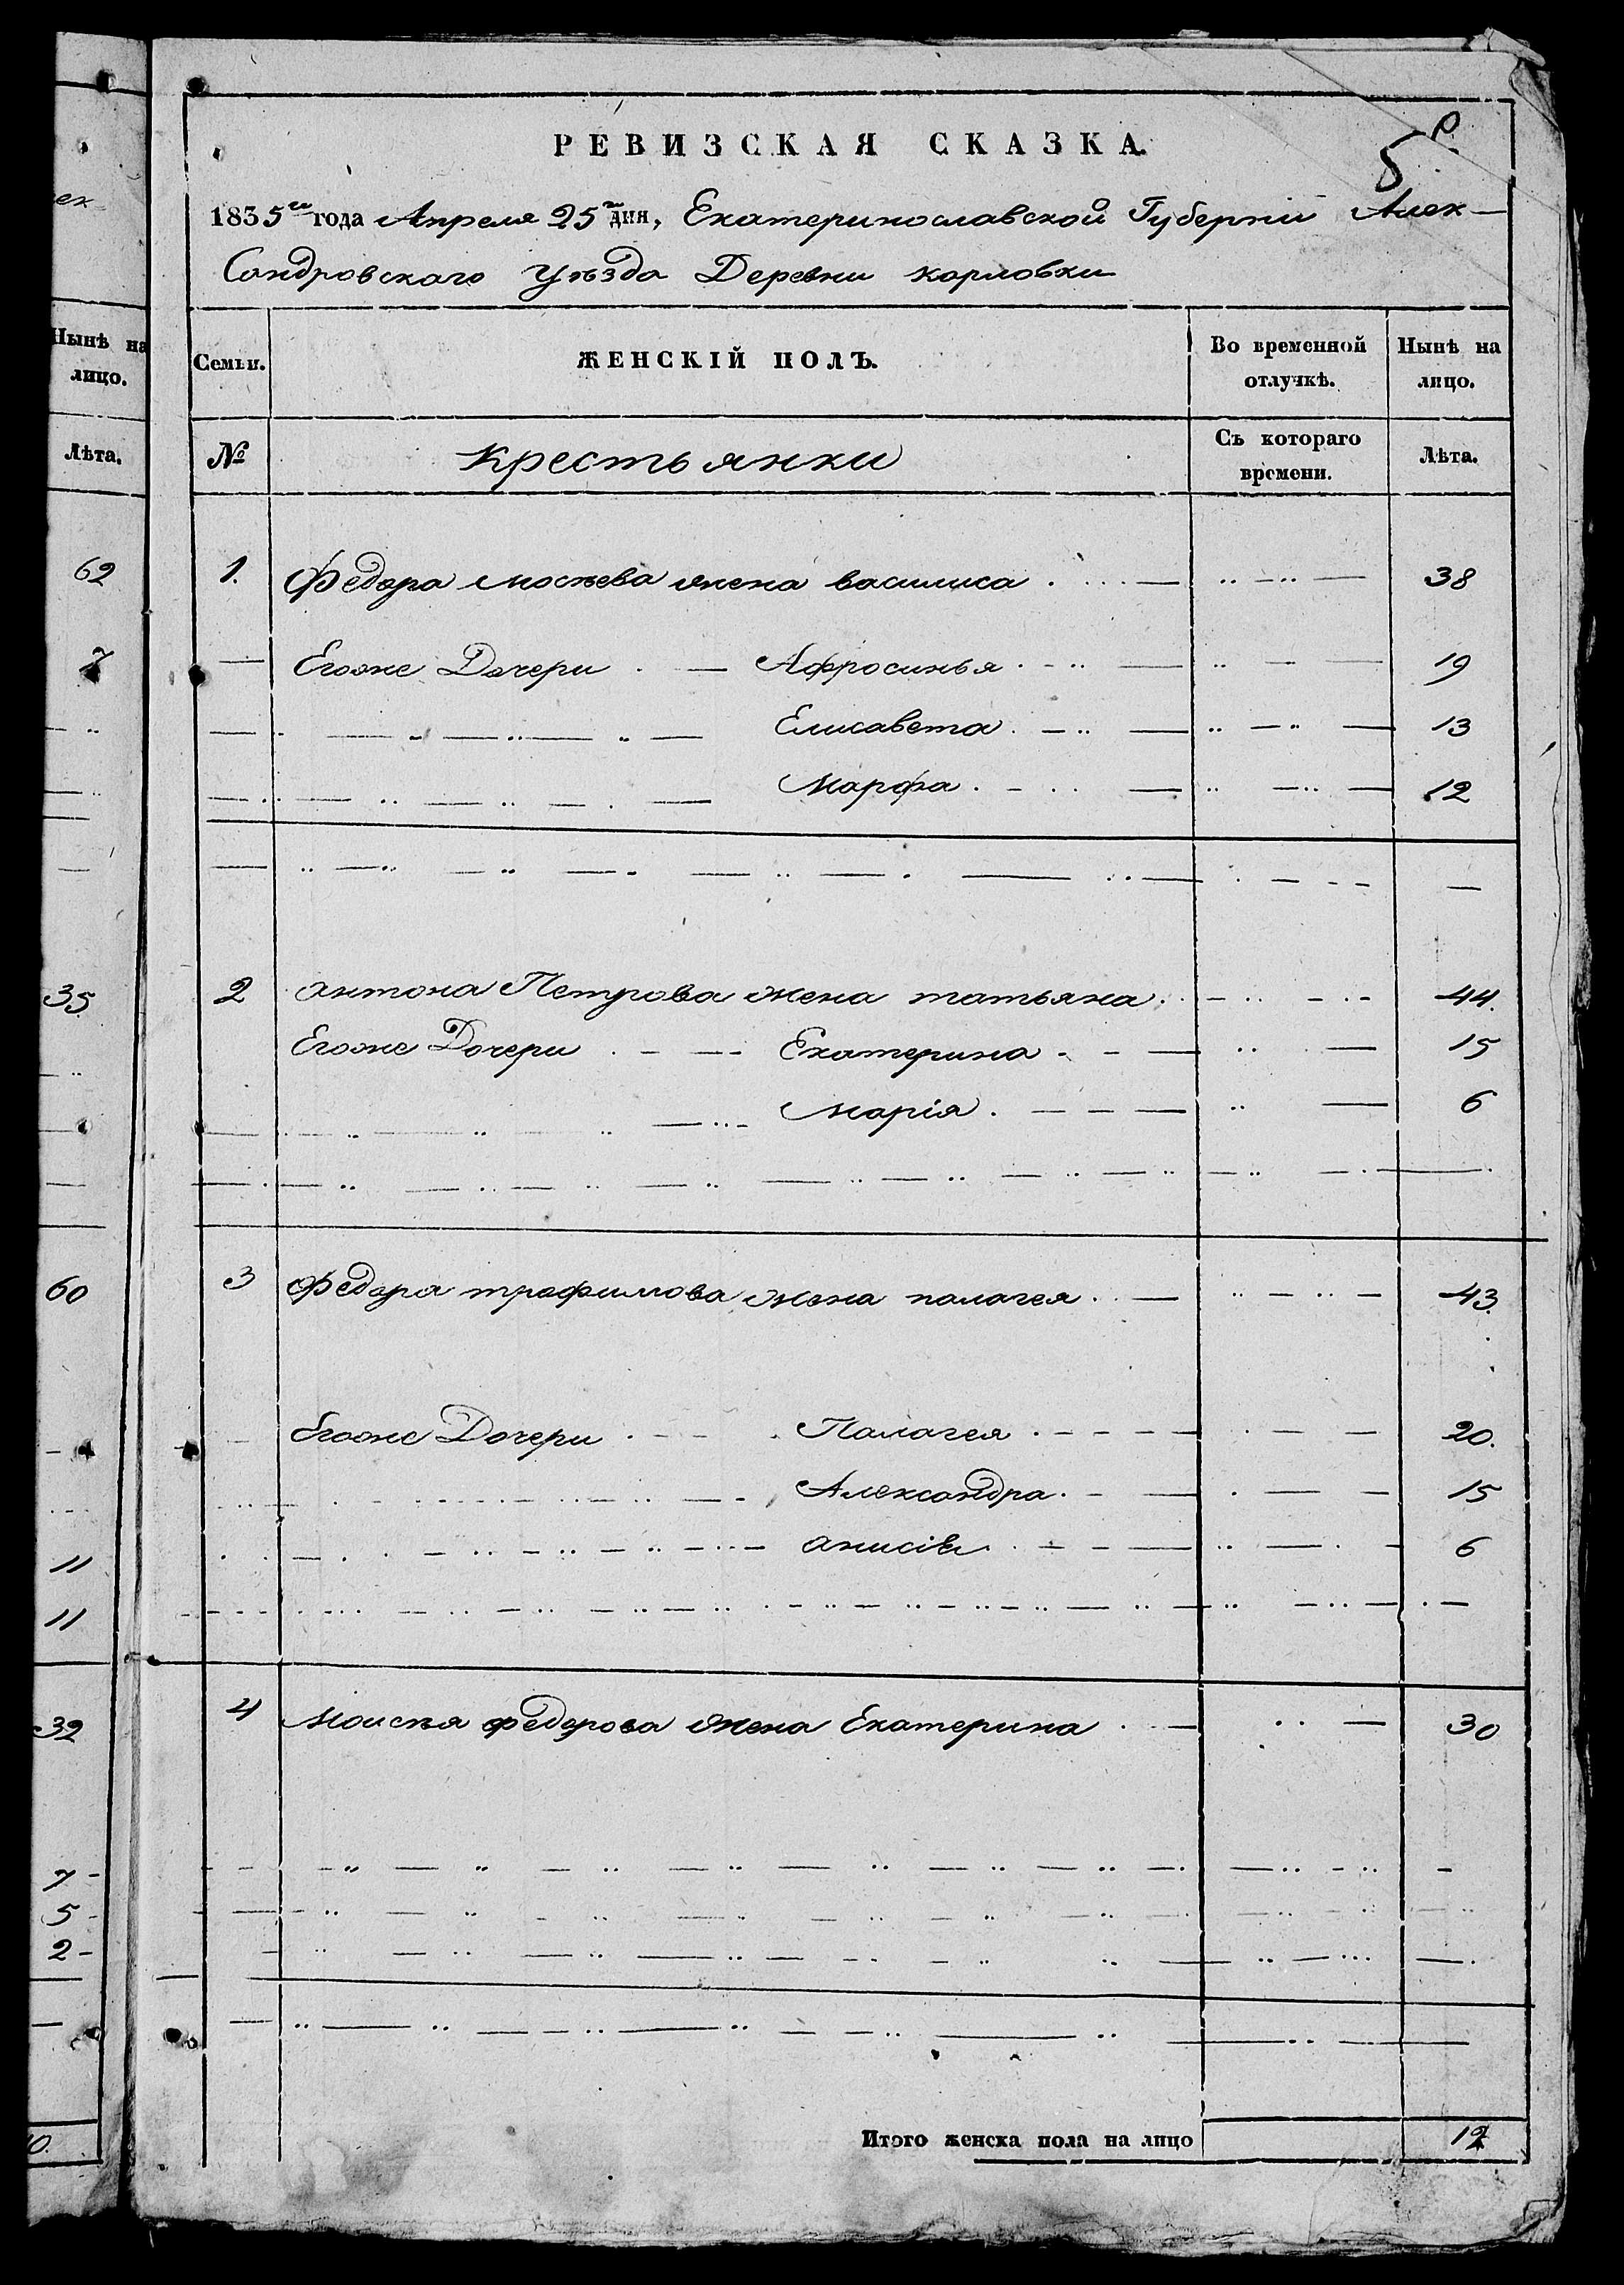 ех
Нынѣ на
лицо.
Лѣта.
62
7
35
60
11
11
32
7 -
5 -
2 -
10.
РЕВИЗСКАЯ СКАЗКА.
5
1835го года Апреля 25го дня, Екатеринославской Губерніи Алек-
Сандровскаго Уѣзда Деревни карловки
Семьи. ЖЕНСКІЙ ПОЛЪ. Во временной отлучкѣ. Нынѣ на лицо.
№ Крестьянки Съ котораго времени. Лѣта.
1. Федора Мосѣева жена василиса 38
Егоже Дочери Афросинья 19
Елисавета 13
Марфа 12
2 антона Петрова жена татьяна 44.
Егоже Дочери Екатерина 15
Марія 6
3 Федора трофимова жена палагея 43.
Егоже Дочери Палагея 20.
Александра 15
6
4 Моисѣя федорова жена Екатерина 30
Итого женска пола на лицо 12